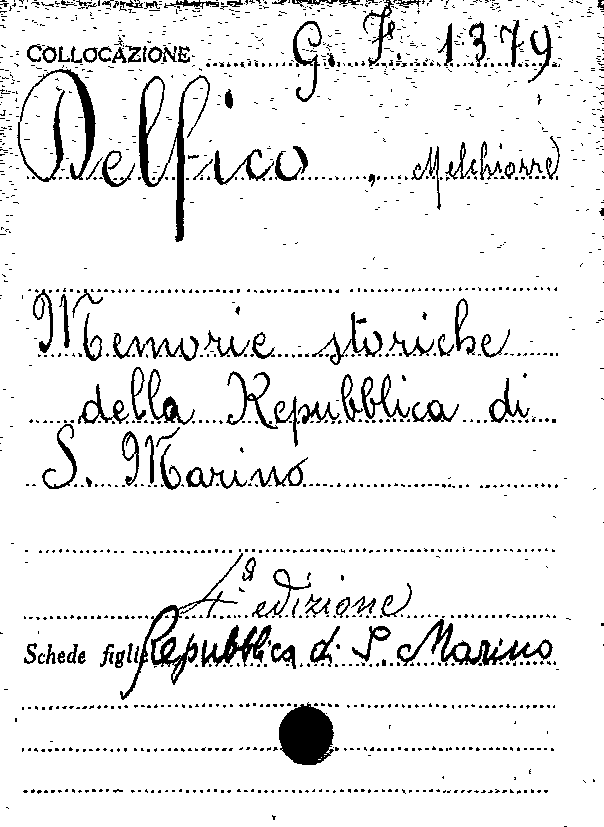 COLLOCAZIONE G. F. 1379
Delfico, Melchiorre
Memorie storiche
della Repubblica di
S. Marino
4ª edizione
Schede figlie Repubblica di S. Marino